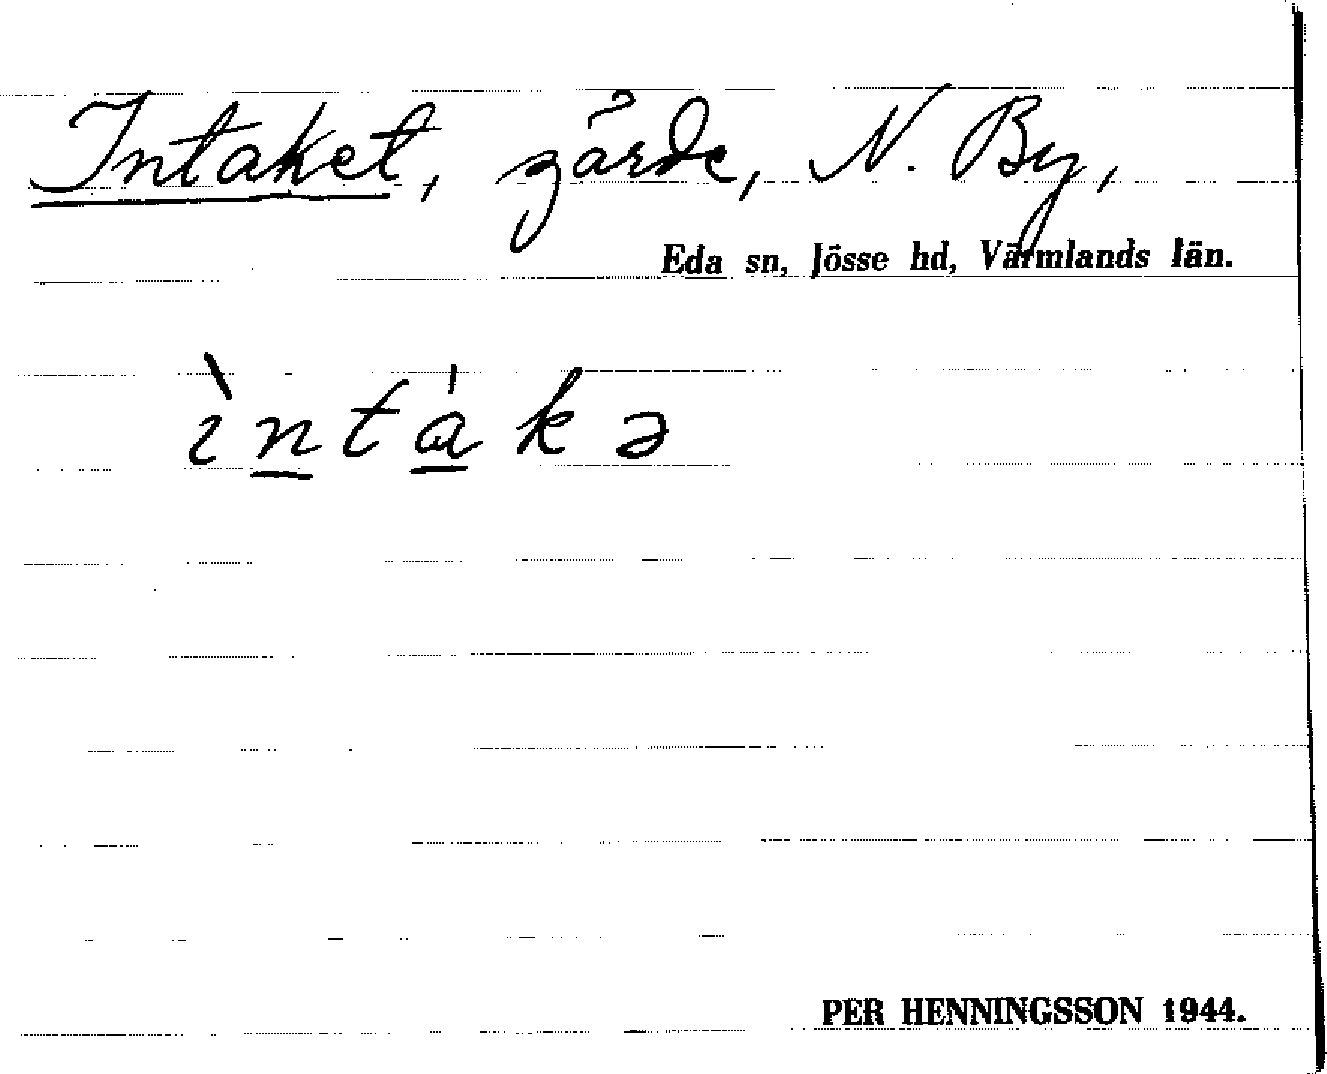 Intaket, gärde, N. By,
Eda sn, Jösse hd, Värmlands län.
ìntákə
PER HENNINGSSON 1944.